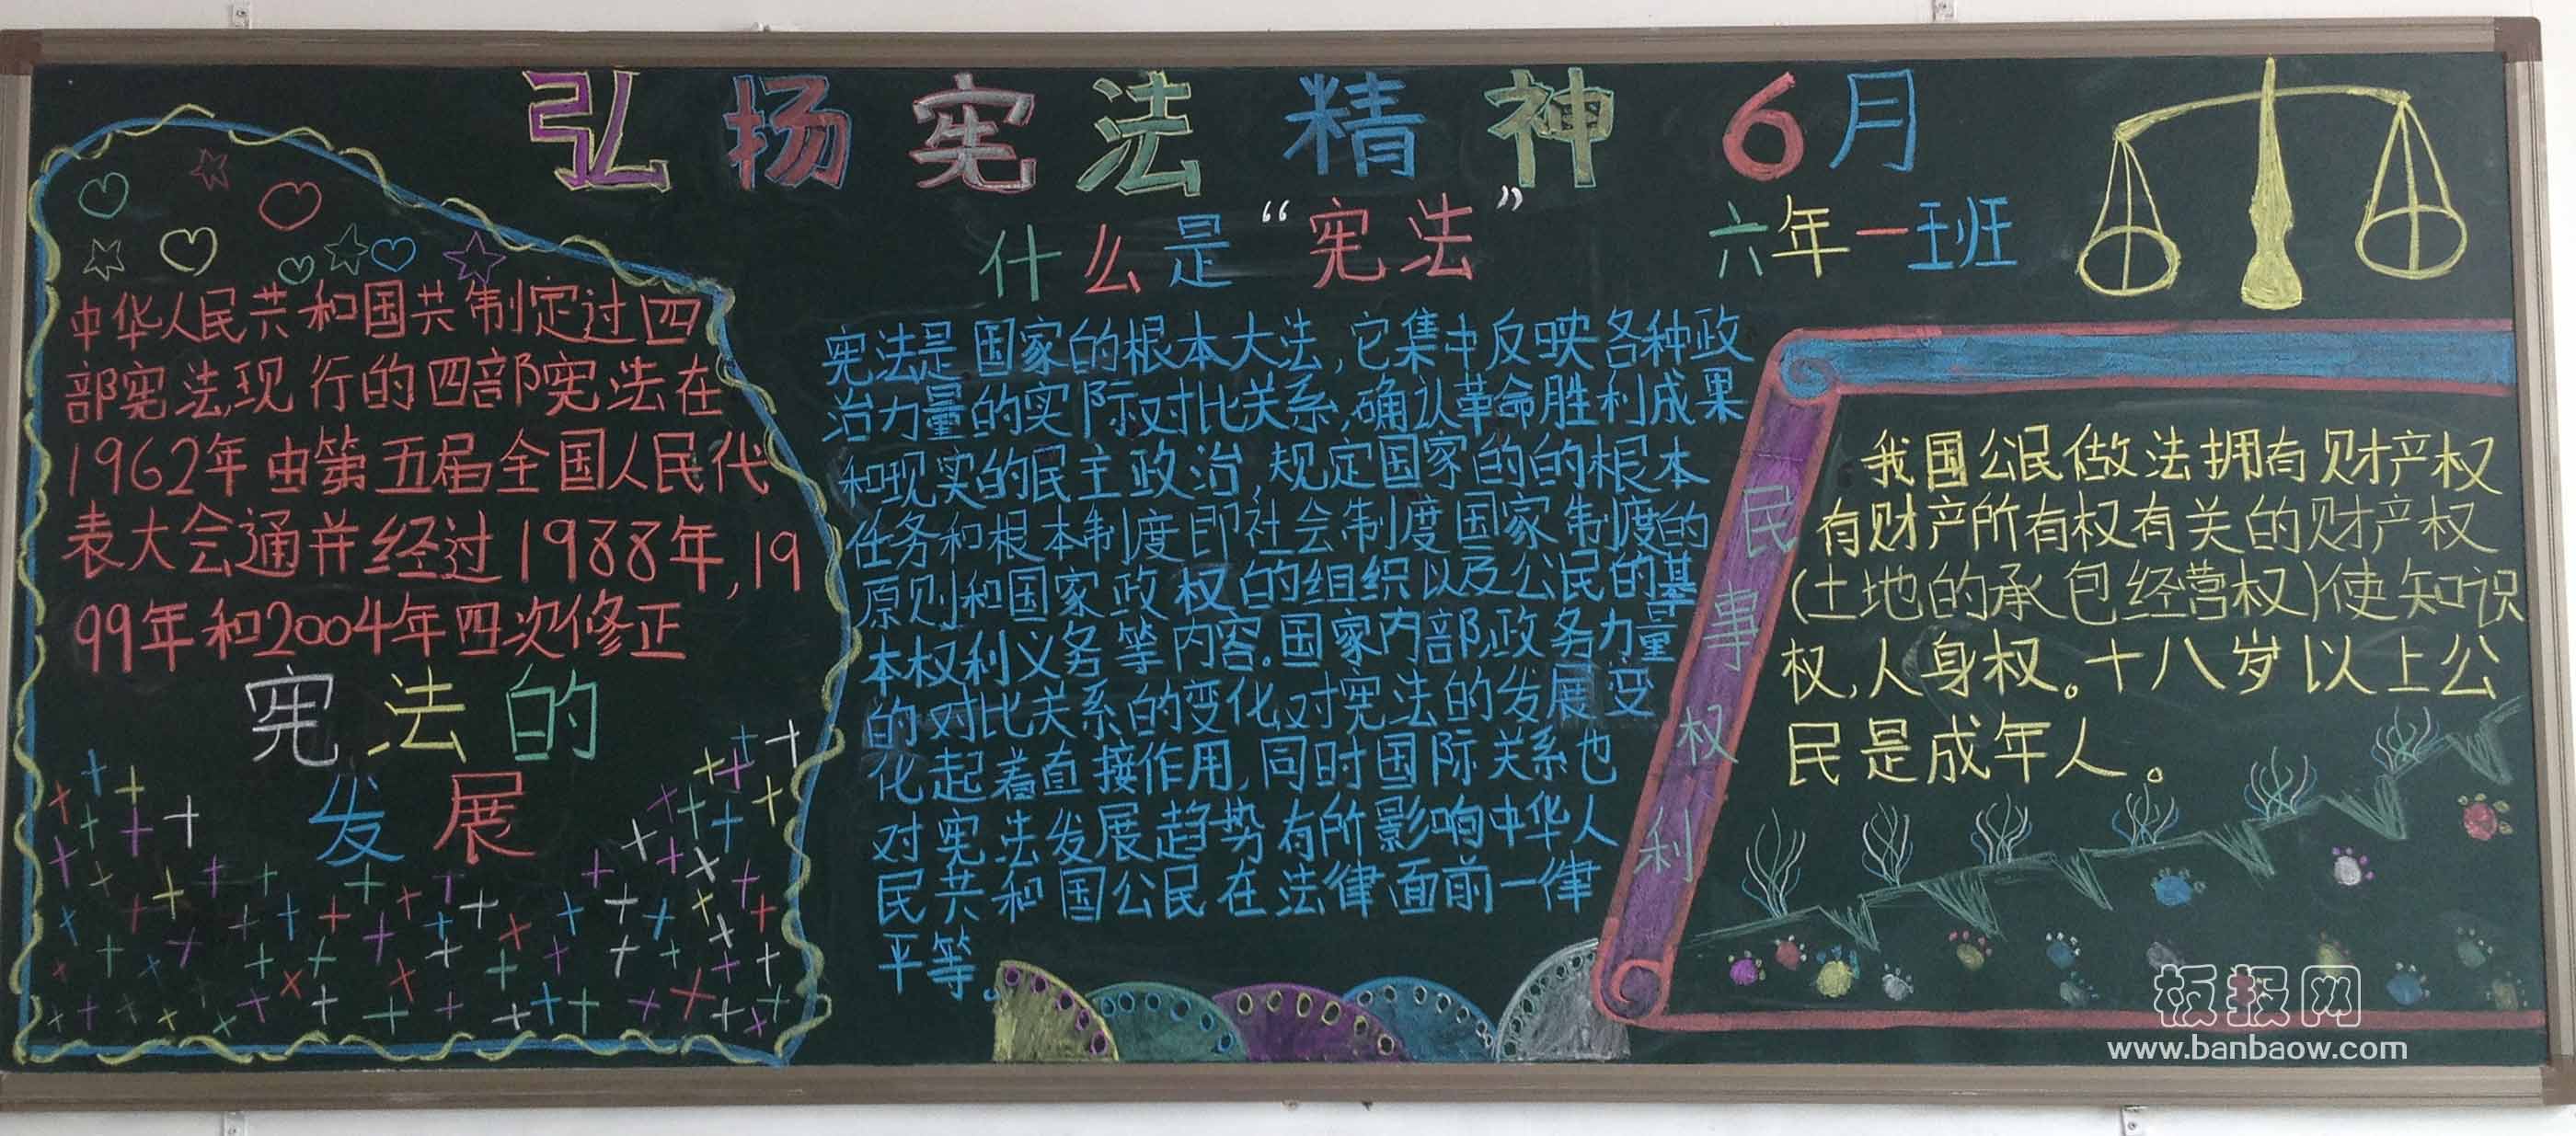 弘扬宪法精神 6月
什么是“宪法”
六年一班
中华人民共和国共制定过四
部宪法,现行的四部宪法在
1962年由第五届全国人民代
表大会通并经过1988年,19
99年和2004年四次修正
宪法的
发展
宪法是国家的根本大法,它集中反映各种政
治力量的实际对比关系,确认革命胜利成果
和现实的民主政治,规定国家的的根本
任务和根本制度即社会制度国家制度的
原则和国家政权的组织以及公民的基
本权利义务等内容。国家内部政务力量
的对比关系的变化,对宪法的发展变
化起着直接作用,同时国际关系也
对宪法发展趋势有所影响中华人
民共和国公民在法律面前一律
平等。
民事权利
我国公民做法拥有财产权
有财产所有权有关的财产权
(土地的承包经营权)使知识
权,人身权。十八岁以上公
民是成年人。
板报网
www.banbaow.com